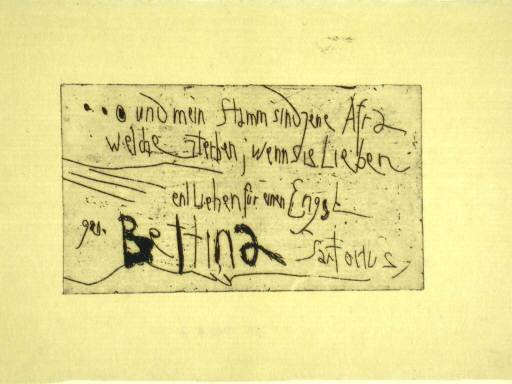 ... und mein Stamm sind jene Afra
welche sterben, wenn sie Lieben
entliehen für einen
Bettina Sartorius,